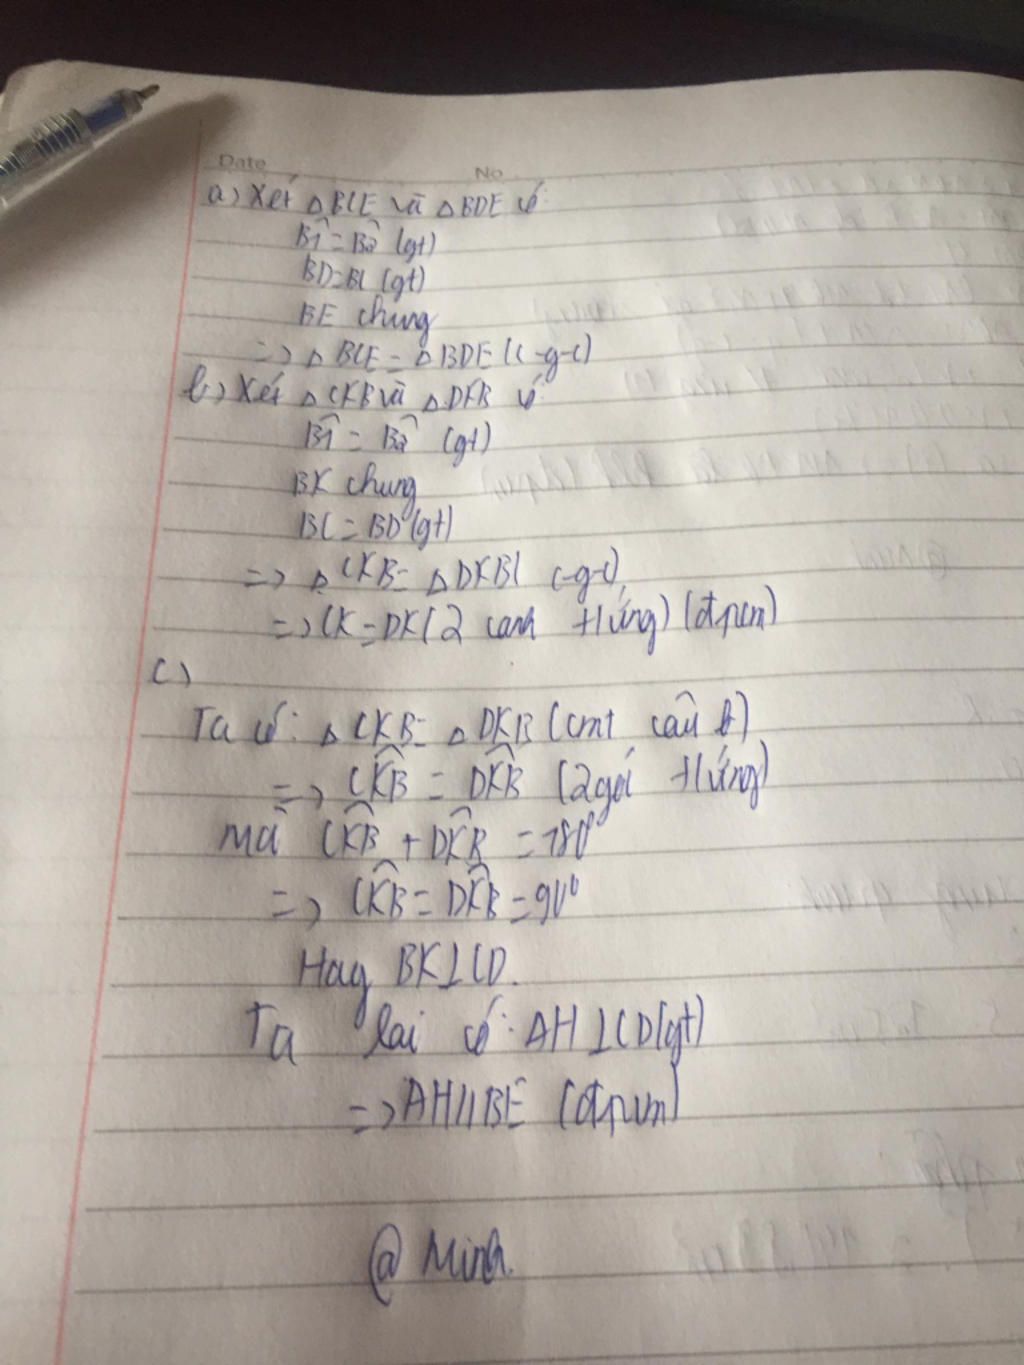 Date No
a) Xét △BCE và △BDE có:
B̂1 = B̂2 (gt)
BD=BC (gt)
BE chung
=> △BCE = △BDE (c-g-c)
b) Xét △CKB và △DKB có
B̂1 = B̂2 (gt)
BK chung
BC = BD (gt)
=> △CKB= △DKB( c-g-c)
=> CK=DK(2 cạnh t/ứng) (đpcm)
c)
Ta có: △CKB= △DKB (cmt câu b)
=> CKB̂ = DKB̂ (2 góc t/ứng)
Mà CKB̂ + DKB̂ =180°
=> CKB̂ = DKB̂ =90°
Hay BK⊥CD.
Ta lại có: AH⊥CD(gt)
=> AH//BE (đpcm)
@ Minh.